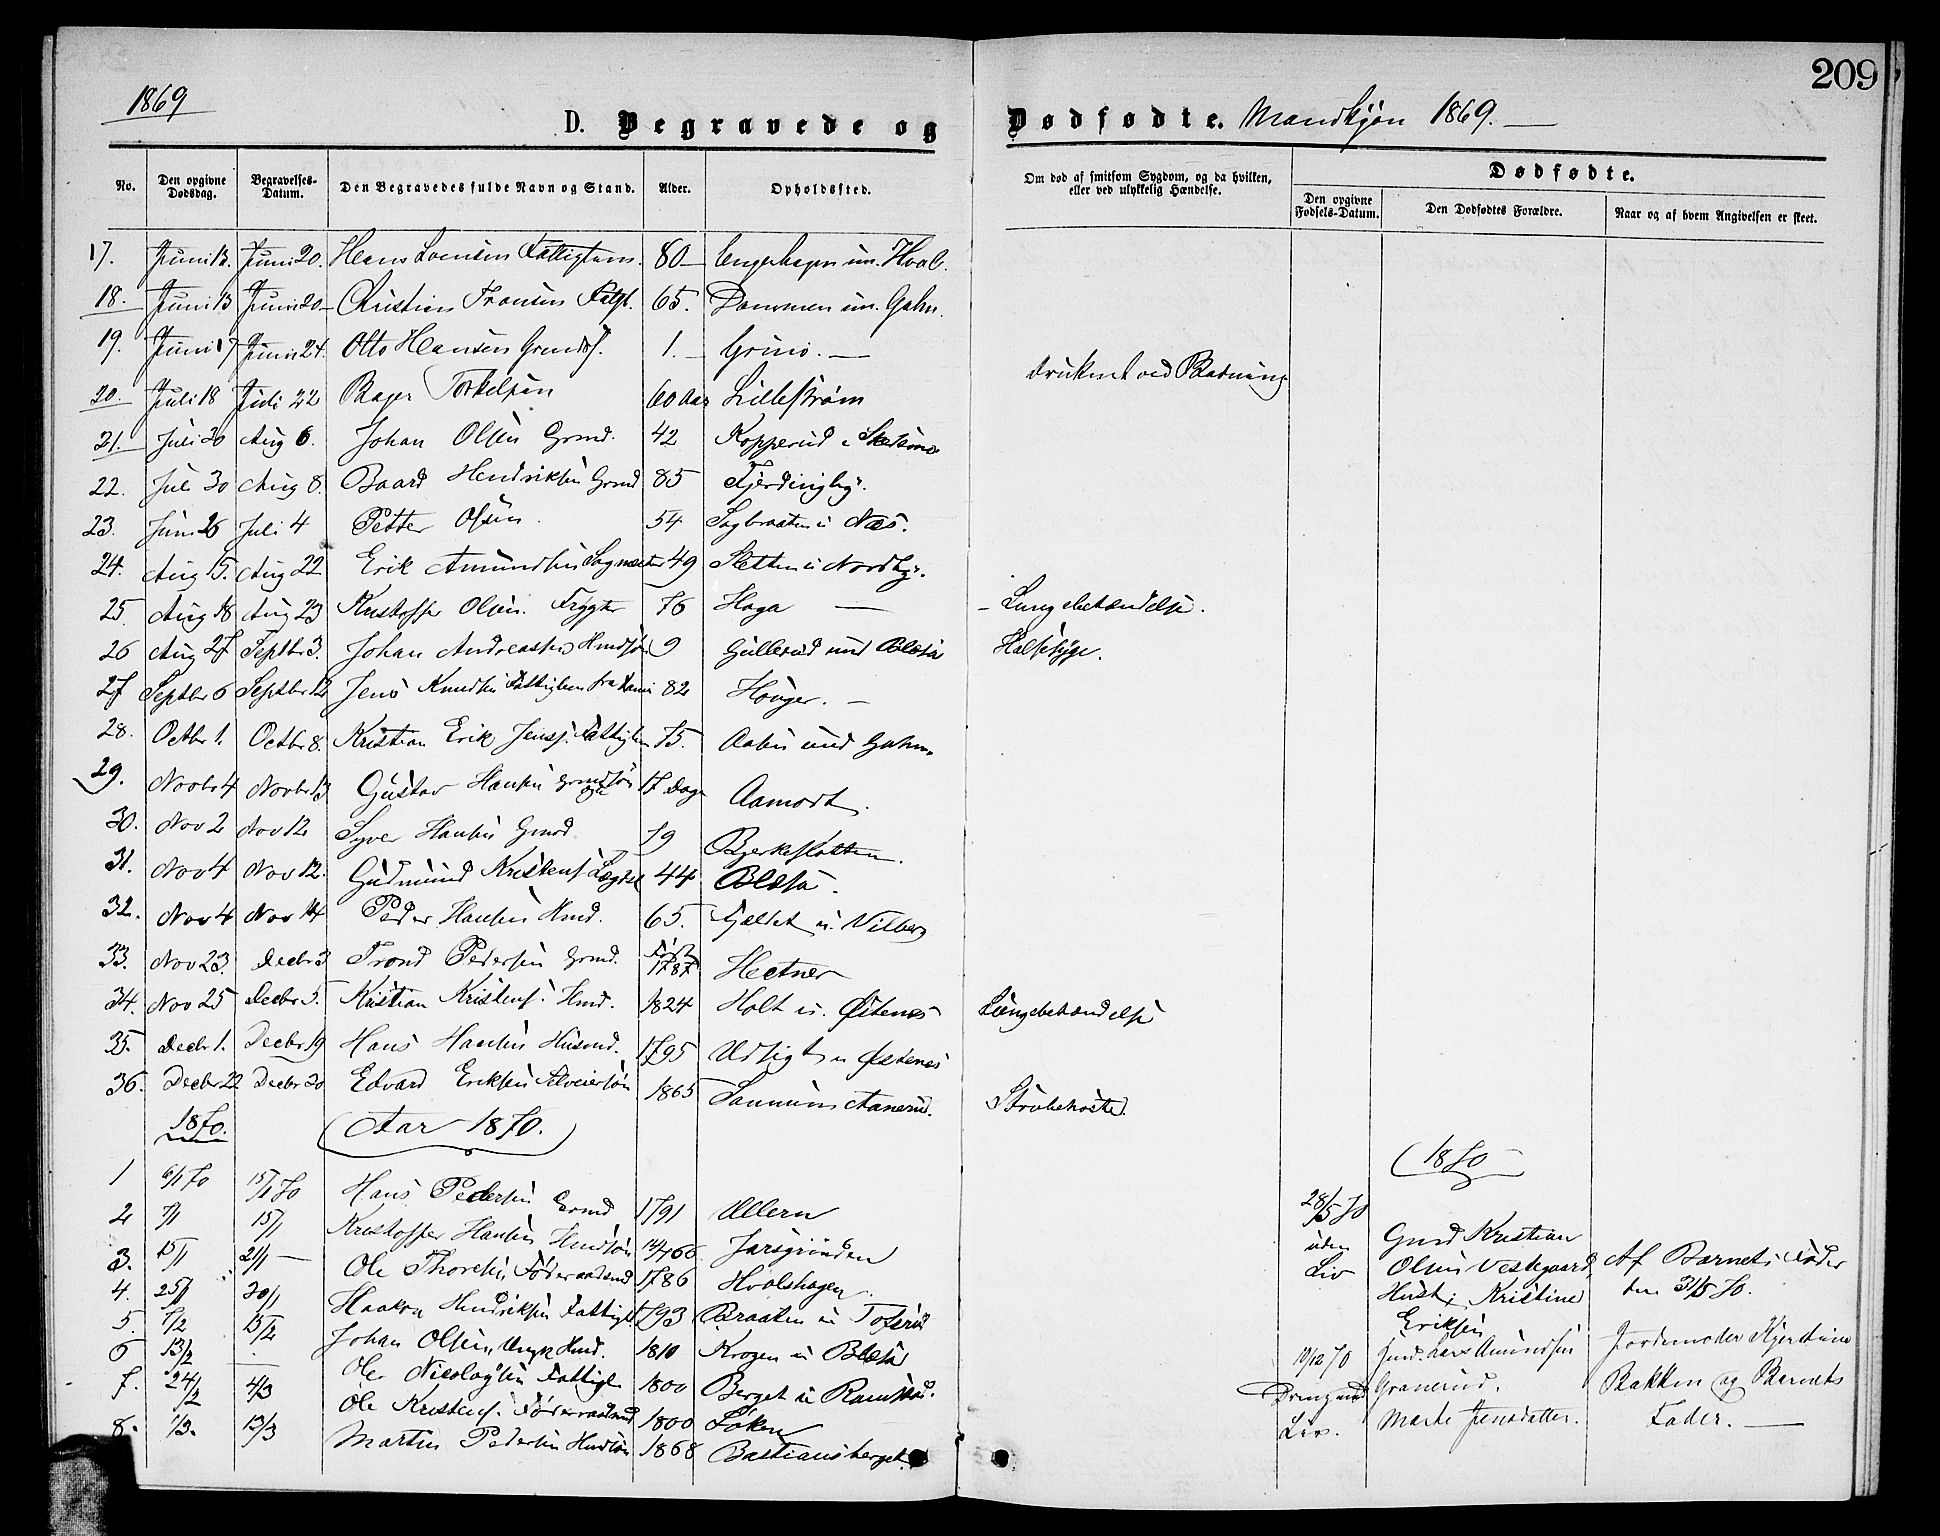 209
1869
D. Begravede og Dødfødte. Mandkjøn 1869.
No. Den opgivne Dødsdag. Begravelses-Datum. Den Begravedes fulde Navn og Stand. Alder. Opholdssted. Om død af smitsom Sygdom, og da hvilken, eller ved ulykkelig Hændelse. Dødfødte.
Den opgivne Fødsels-Datum. Den Dødfødtes Forældre. Naar og af hvem Angivelsen er skeet.
17. Juni 12. Juni 20. Hans Fattiglem. 80 Hval.
18. Juni 13 Juni 20 Christian Fransen 65. Dammen un. Gahn.
19. Juni 17 Juni 24. Otto Hansen 1. Grinø.
20. Juli 18 Juli 22 Torkelsen 60 Aar Lillestrøm druknet ved Badning
21. Juli 30 Aug 6. Johan Olsen Grmd. 42 Kopperud i Skedsmo
22. Juli 30 Aug 8. Baard Hendriksen Grmd 85 Fjerdingby.
23. Juni 26 Juli 4 Petter Olsen. 54 Sagbraaten i Næs.
24. Aug 15. Aug 22 Erik Amundsen Sagmester 49 Sletten u Nordby.
25 Aug 18 Aug 23 Kristoffer Olsen. 76 Haga Lungebetændelse.
26 Aug 27 Septbr 3. Johan Andreassen Hmdsøn 9 Gullerud und Blæsa Halssyge.
27 Septbr 6 Septbr 12 Jens Knudsen Fattiglem 82 Houger.
28. Octbr 1. Octbr 8. Kristian Erik Jensf. Fattiglem 75. und Gahn.
29. Novbr 4 Novbr 13 Gustav Hansen 17 Dage Aamodt.
30. Nov 2 Nov 12 Syver Hansen Grmd 79 Bjerkeslotten.
31. Nov 4 Nov 12. Gudmund Kristensf. Lægdsl 44 Blæsa.
32. Nov 4 Nov 14 Peder Hansen Hmd. 65. Fjeldet u. Vilberg
33. Nov 23. Decbr 3 Trond Pedersen Grmd. Født 1787 Hectner
34. Nov 25 Decbr 5. Kristian Kristensf. Hmd. 1824 Holt u. Østenes Lungebetændelse
35. Decbr 1. Decbr 19 Hans Hansen Husmd. 1795 Udsigt u Østenes
36. Decbr 22 Decbr 30 Edvard Eriksen 1865 Aanerud. Strubehoste.
1870. Aar 1870. 1870
1 6/1 70 15/1 70 Hans Pedersen Grmd 1791 Ullern
2 7/1 15/1 Kristoffer Hansen Hmdsøn Jarsgrunden
3. 15/1 21/1 Ole Thoresen Føderaadsmd 1786 Hvalshagen
4. 25/1 30/1 Haakon Hendriksen Fattigl 1793 Braaten u Toserud
5. 7/2 13/2 Johan Olsen Hmd. 1810 Krogen u Blæsa
6 13/2 Ole Nicolaysen Fattigl 1800 Berget u
7. 24/2 4/3 Ole Kristensf. Føderaadsmd 1800 Løken
8. 13/3 Martin Pedersen Hmdsøn 1868 Bastiansberget
28/5 70 uden Liv
Grmd Kristian Olsen Vestgaard, Hust; Kristine Eriksen
Af Barnets Fader den 31/5 70.
10/12 70 Dreng uden Liv.
Grmd. Lars Amundsen Granerud. Marte Jensdatter.
Jordemoder Kjerstine Bakken og Barnets Fader.